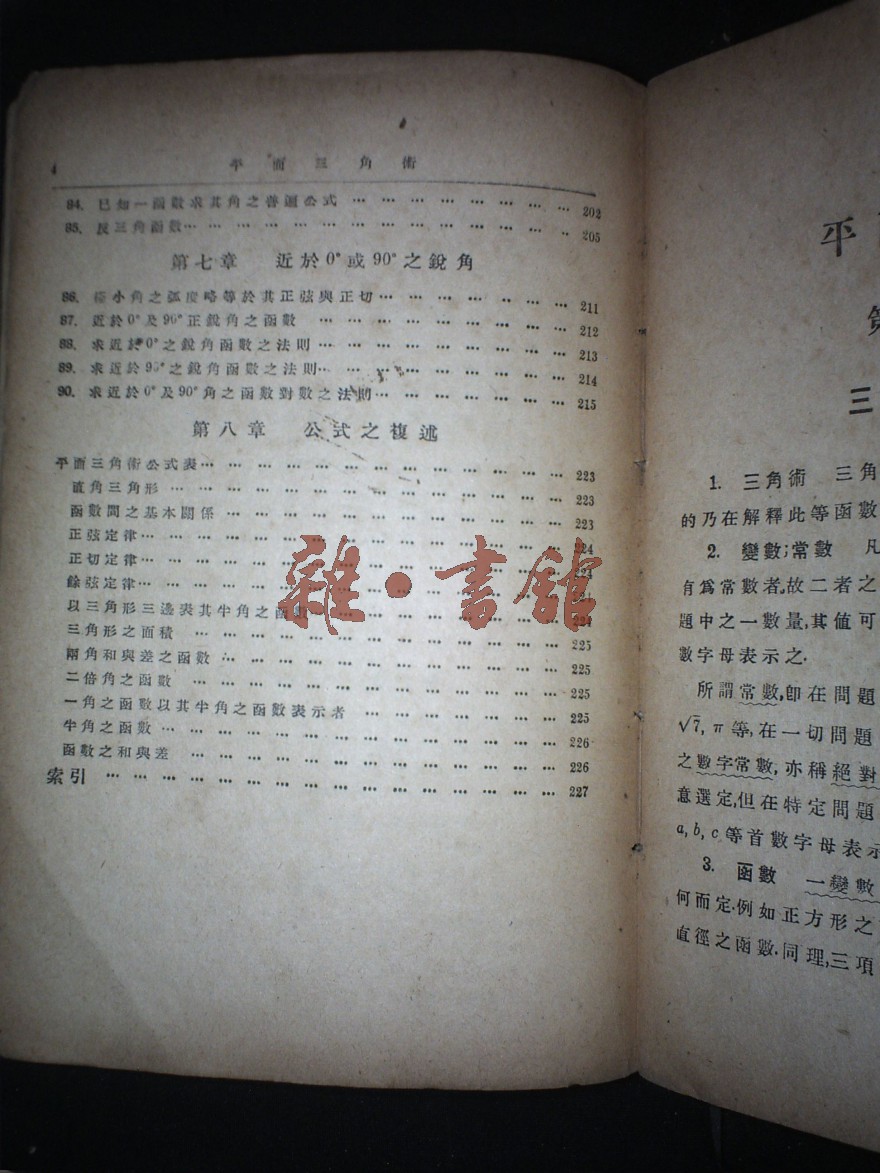 4 平面三角術
84. 已知一函數求其角之普遍公式 … … … … … … … … … 202
85. 反三角函數… … … … … … … … … … … … … … .. 205
第七章 近於0°或90°之銳角
86. 極小角之弧度略等於其正弦與正切… … … … … … … … 211
87. 近於0°及90°正銳角之函數 … … … … … … … … … … 212
88. 求近於0°之銳角函數之法則… … … … … … … … … … 213
89. 求近於90°之銳角函數之法則… … … … … … … … … … 214
90. 求近於0°及90°角之函數對數之法則… … … … … … … … 215
第八章 公式之複述
平面三角術公式表… … … … … … … … … … … … … … 223
直角三角形 … … … … … … … … … … … … … … … 223
函數間之基本關係 … … … … … … … … … … … … … 223
正弦定律… … … … … … … … … … … … … … … 224
正切定律… … … … … … … … … … … … … … … 224
餘弦定律… … … … … … … … … … … … … … … 224
以三角形三邊表其半角之函數… … … … … … … … … … 224
三角形之面積 … … … … … … … … … … … … … 225
兩角和與差之函數 … … … … … … … … … … … … 225
二倍角之函數 … … … … … … … … … … … … … 225
一角之函數以其半角之函數表示者 … … … … … … … 225
半角之函數… … … … … … … … … … … … … … 226
函數之和與差 … … … … … … … … … … … … … 226
索引 … … … … … … … … … … … … … … … … 227
雜·書館
平
三
1. 三角術 三角
的乃在解釋此等函數
2. 變數;常數 凡
有爲常數者,故二者之
題中之一數量,其值可
數字母表示之.
所謂常數,卽在問題
√7, π等,在一切問題
之數字常數,亦稱絕對
意選定,但在特定問題
a, b, c等首數字母表示
3. 函數 一變數
何而定.例如正方形之
直徑之函數.同理,三項